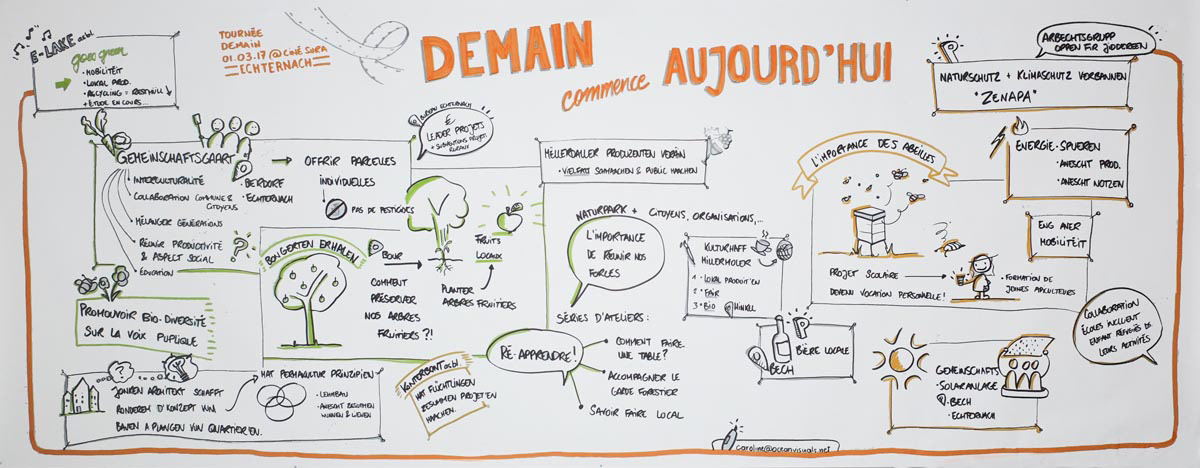 E-LAKE asbl
goes green
• MOBILITÉIT
• LOKAL PROD.
• RECYCLING = RESTMÜLL ↓
+ ÉTUDE EN COURS...
TOURNÉE
DEMAIN
01.03.17 @ CIPÉ SURA
ECHTERNACH
DEMAIN
commence
AUJOURD'HUI
ARBECHTSGRUPP
OPPEN FIR JIDDEREEN
NATURSCHUTZ + KLIMASCHUTZ VERBANNEN
"ZENAPA"
GEMEINSCHAFTSGAART
→ OFFRIR PARCELLES
INDIVIDUELLES
PAS DE PESTICIDES
INTERCULTURALITÉ
COLLABORATION COMMUNE &
CITOYENS
MÉLANGER GÉNÉRATIONS
RÉUNIR PRODUCTIVITÉ
& ASPECT SOCIAL
ÉDUCATION
?
• BERDORF
• ECHTERNACH
BUREAU ECHTERNACH
LEADER PROJETS
+ SUBVENTIONS PROJET
RURAUX
MËLLERDALLER PRODUZENTEN VERÄIN
• VIELFALT SCHMAACHEN & PUBLIK MAACHEN
L'IMPORTANCE DES ABEILLES
ENERGIE • SPUEREN
• ANESCHT PROD.
• ANESCHT NOTZEN
ENG ANER
MOBILITÉIT
BONGERTEN ERHALEN
BOUR
COMMENT
PRÉSERVER
NOS ARBRES
FRUITIERS ?!
PLANTER
ARBRES FRUITIERS
FRUITS
LOCAUX
NATURPARK + CITOYENS, ORGANISATIONS,...
L'IMPORTANCE
DE RÉUNIR NOS
FORCES
KULTURHAFF
MILLERMOLER
1• LOKAL PRODUIT'EN
2• FAIR
3• BIO
@ HINKEL
PROJET SCOLAIRE
DEVENU VOCATION PERSONNELLE !
• FORMATION DE
JEUNES APICULTEURS
PROMOUVOIR BIO-DIVERSITÉ
SUR LA VOIX PUPLIQUE
SÉRIES D'ATELIERS:
RÉ-APPRENDRE !
• COMMENT FAIRE
UNE TABLE?
• ACCOMPAGNER LE
GARDE FORESTIER
• SAVOIR FAIRE LOCAL
BIÈRE LOCALE
BECH
COLLABORATION
ÉCOLES INCLUENT
ENFANT RÉFUGIÉS DE
LEURS ACTIVITÉS
GEMEINSCHAFTS
SOLARANLAGE
BECH
• ECHTERNACH
?
JONKEN ARCHITEKT SCHAFFT
RONDEREM D'KONZEPT VUM
BAUEN A PLANGEN VUN QUARTIEREN.
MAT PERMAKULTUR PRINZIPIEN
• LEHMBAU
• ANESCHT ZESUMMEN
WUNNEN & LIEWEN
KONTERBONT asbl
MAT FLÜCHTLINGEN
ZESUMMEN PROJET'EN
MAACHEN.
caroline@oceanvisuals.net